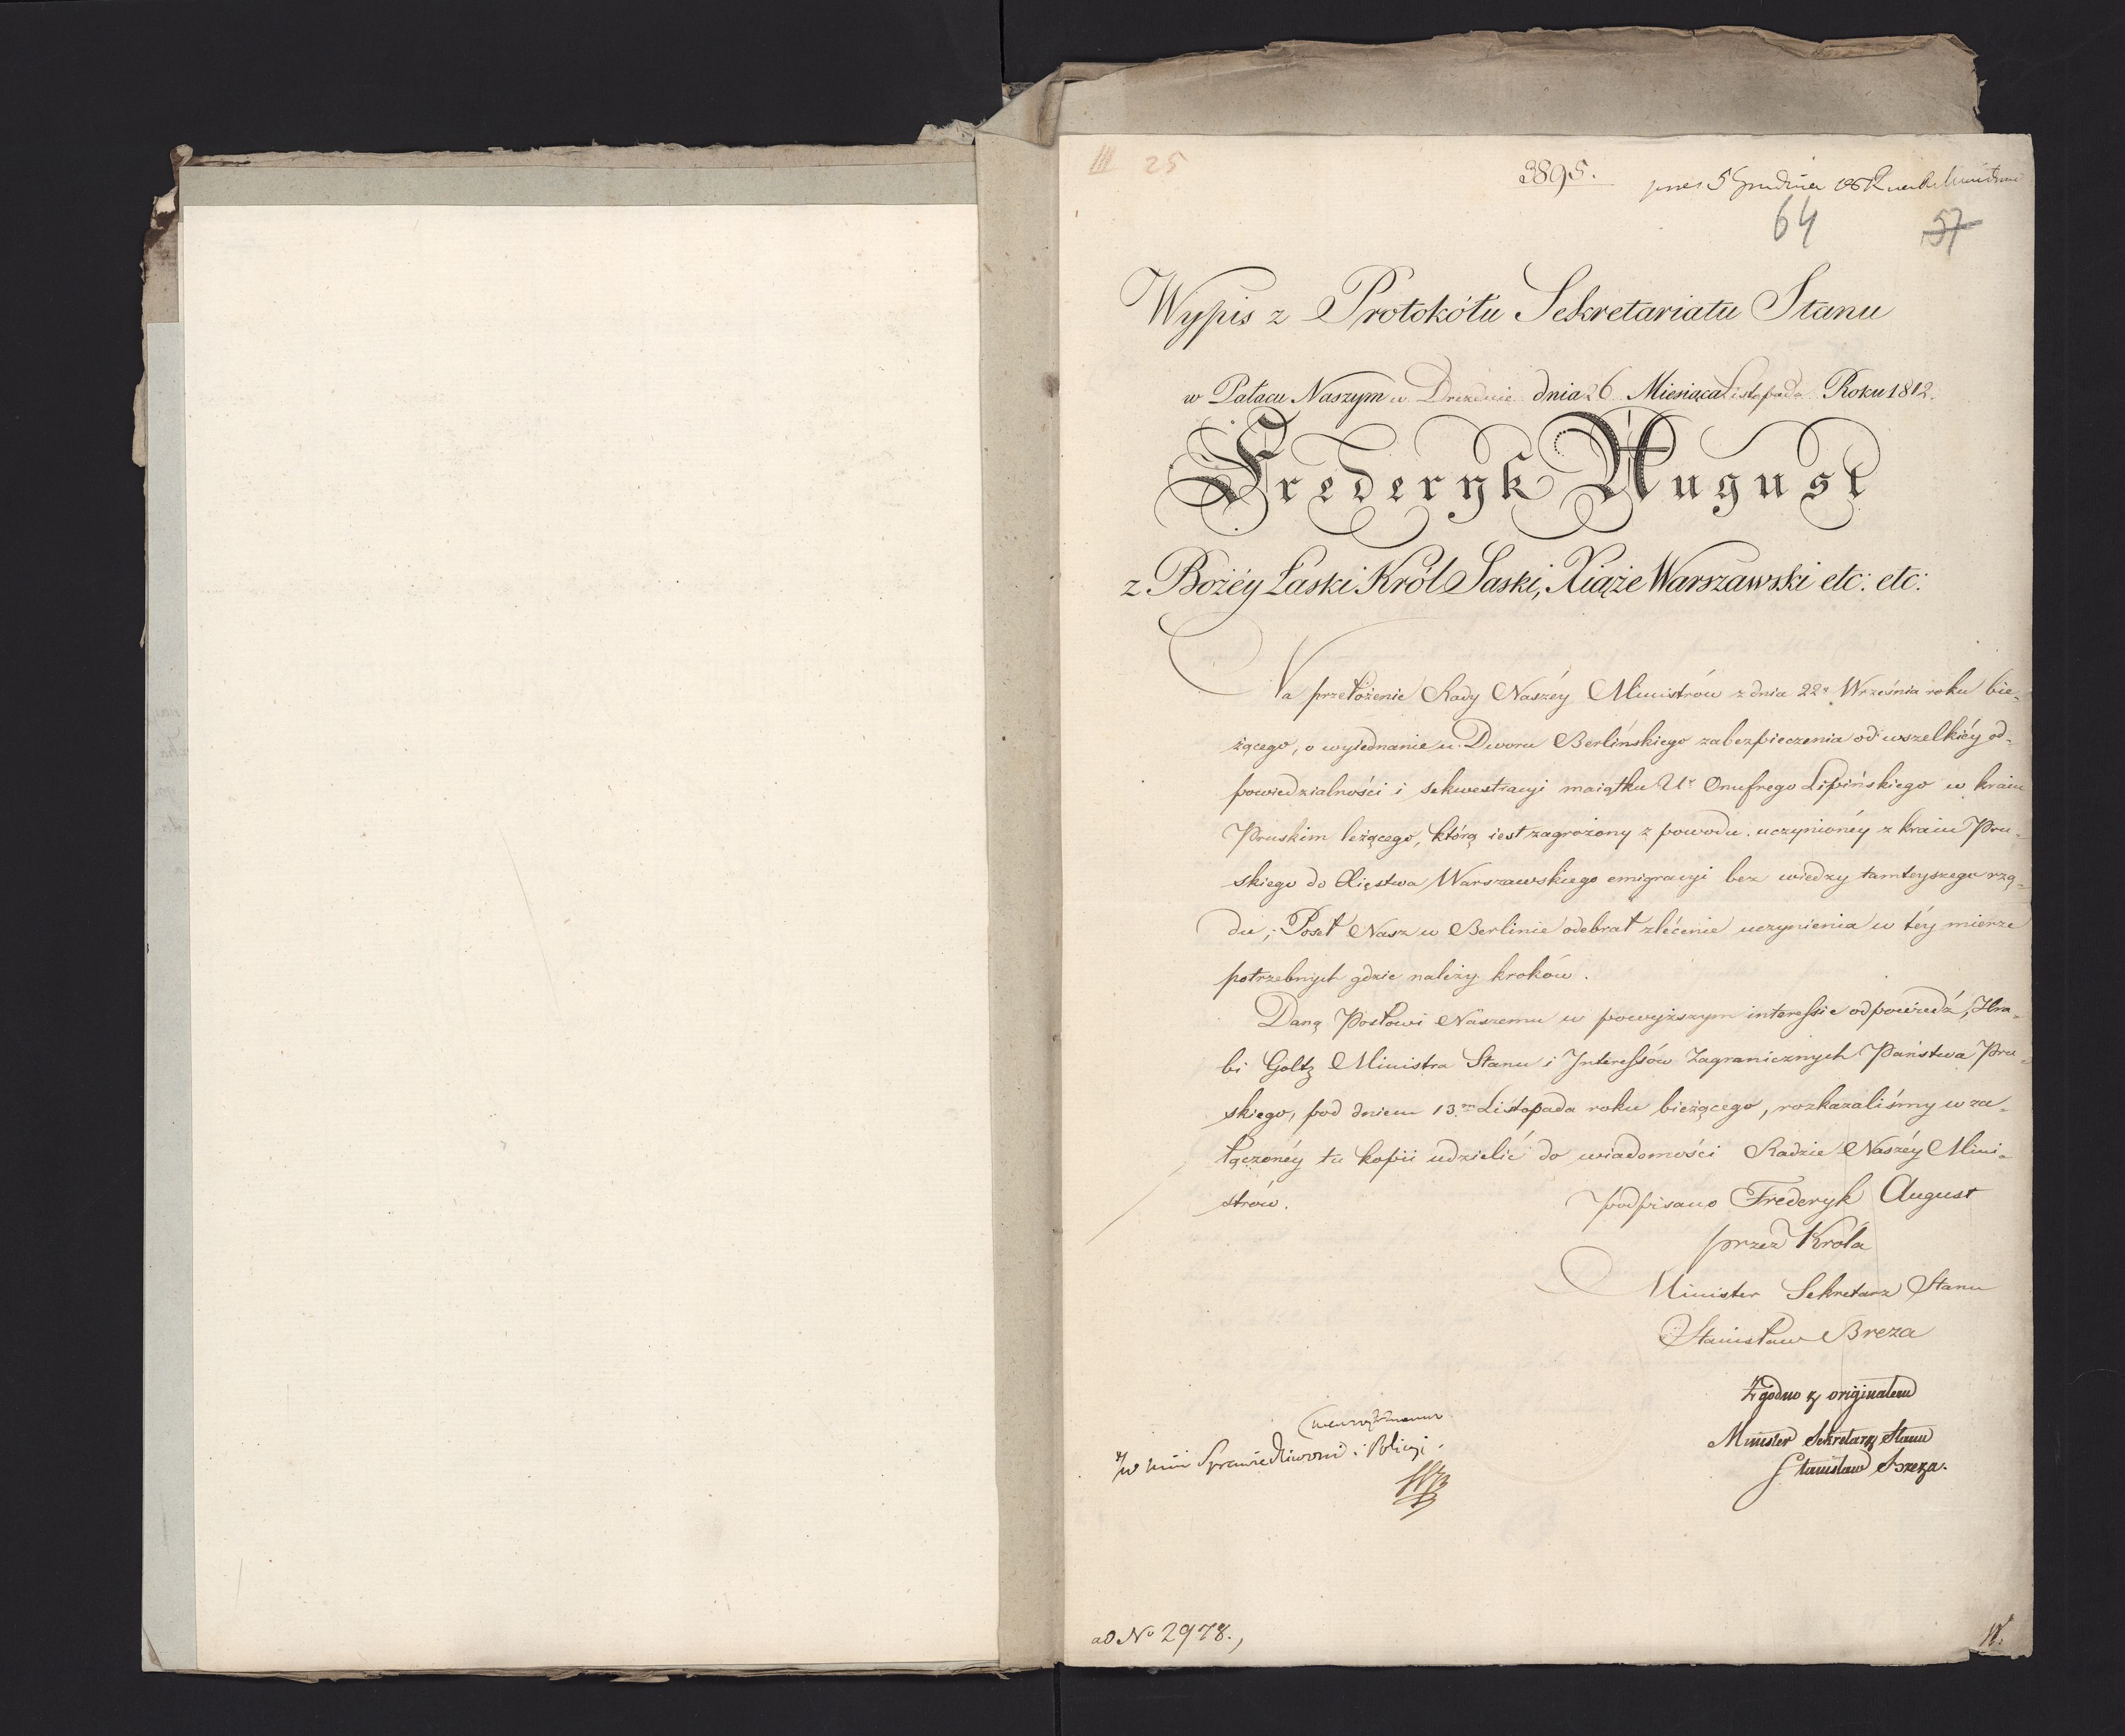 III 25
3895.
pnes 5 Grudnia
64 57
Wypis z Protokółu Sekretariatu Stanu
w Pałacu Naszym w Dreznie dnia 26 Miesiąca Listopada Roku 1812.
Frederyk August
z Bożéy Łaski Król Saski, Xiąże Warszawski etc: etc:
Na przełożenie Rady Naszéy Ministrów z dnia 22º Września roku bie-
żącego, o wyiednanie u Dworu Berlińskiego zabezpieczenia od wszelkiéy od-
powiedzialności i sekwestracyi maiątku Ur Onufrego Lipińskiego w kraiu
Pruskim leżącego, którą iest zagrożony z powodu uczynionéy z kraiu Pru-
skiego do Xięstwa Warszawskiego emigracyi bez wiedzy tamteyszego rzą-
du; Poseł Nasz w Berlinie odebrał zlécenie uczynienia w téy mierze
potrzebnych gdzie należy kroków.
Daną Posłowi Naszemu w powyższym interessie odpowiedź, Hra-
bi Goltz Ministra Stanu i Interessów Zagranicznych Państwa Pru-
skiego, pod dniem 13m Listopada roku bieżącego, rozkazaliśmy w za-
łączonéy tu kopii udzielić do wiadomości Radzie Naszéy Mini-
strów.
podpisano Frederyk August
przez Króla
Minister Sekretarz Stanu
Stanisław Breza
Zgodno z originałem
Minister Sekretarz Stanu
Stanisław Breza.
Sprawiedliwości i Policyi.
ad No 2978.,